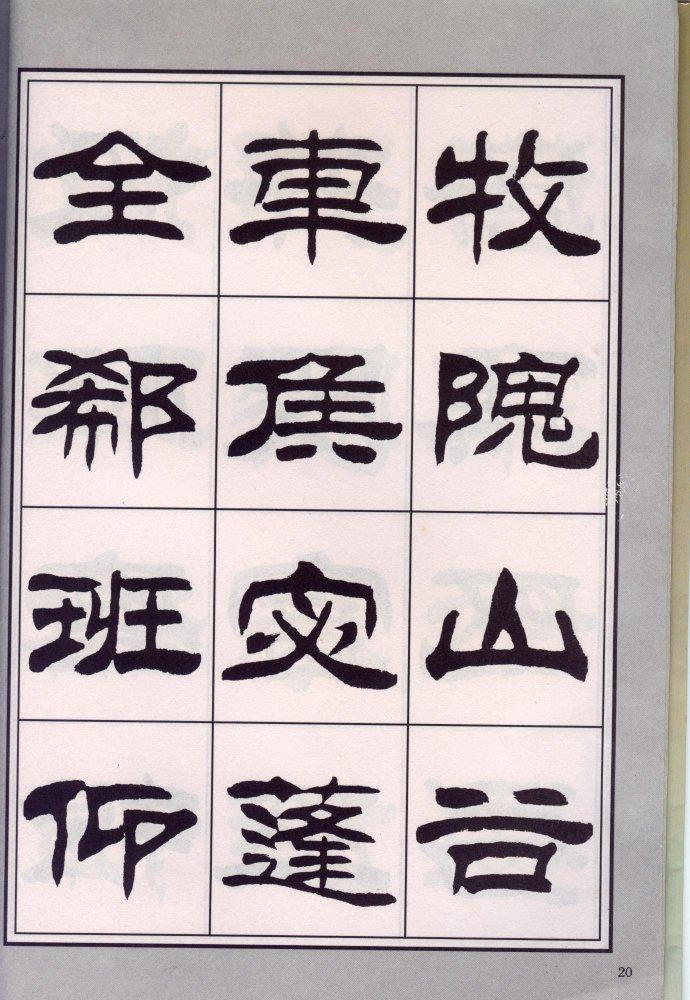 牧隗山谷
車侯宓蓬
全郗班仰
20